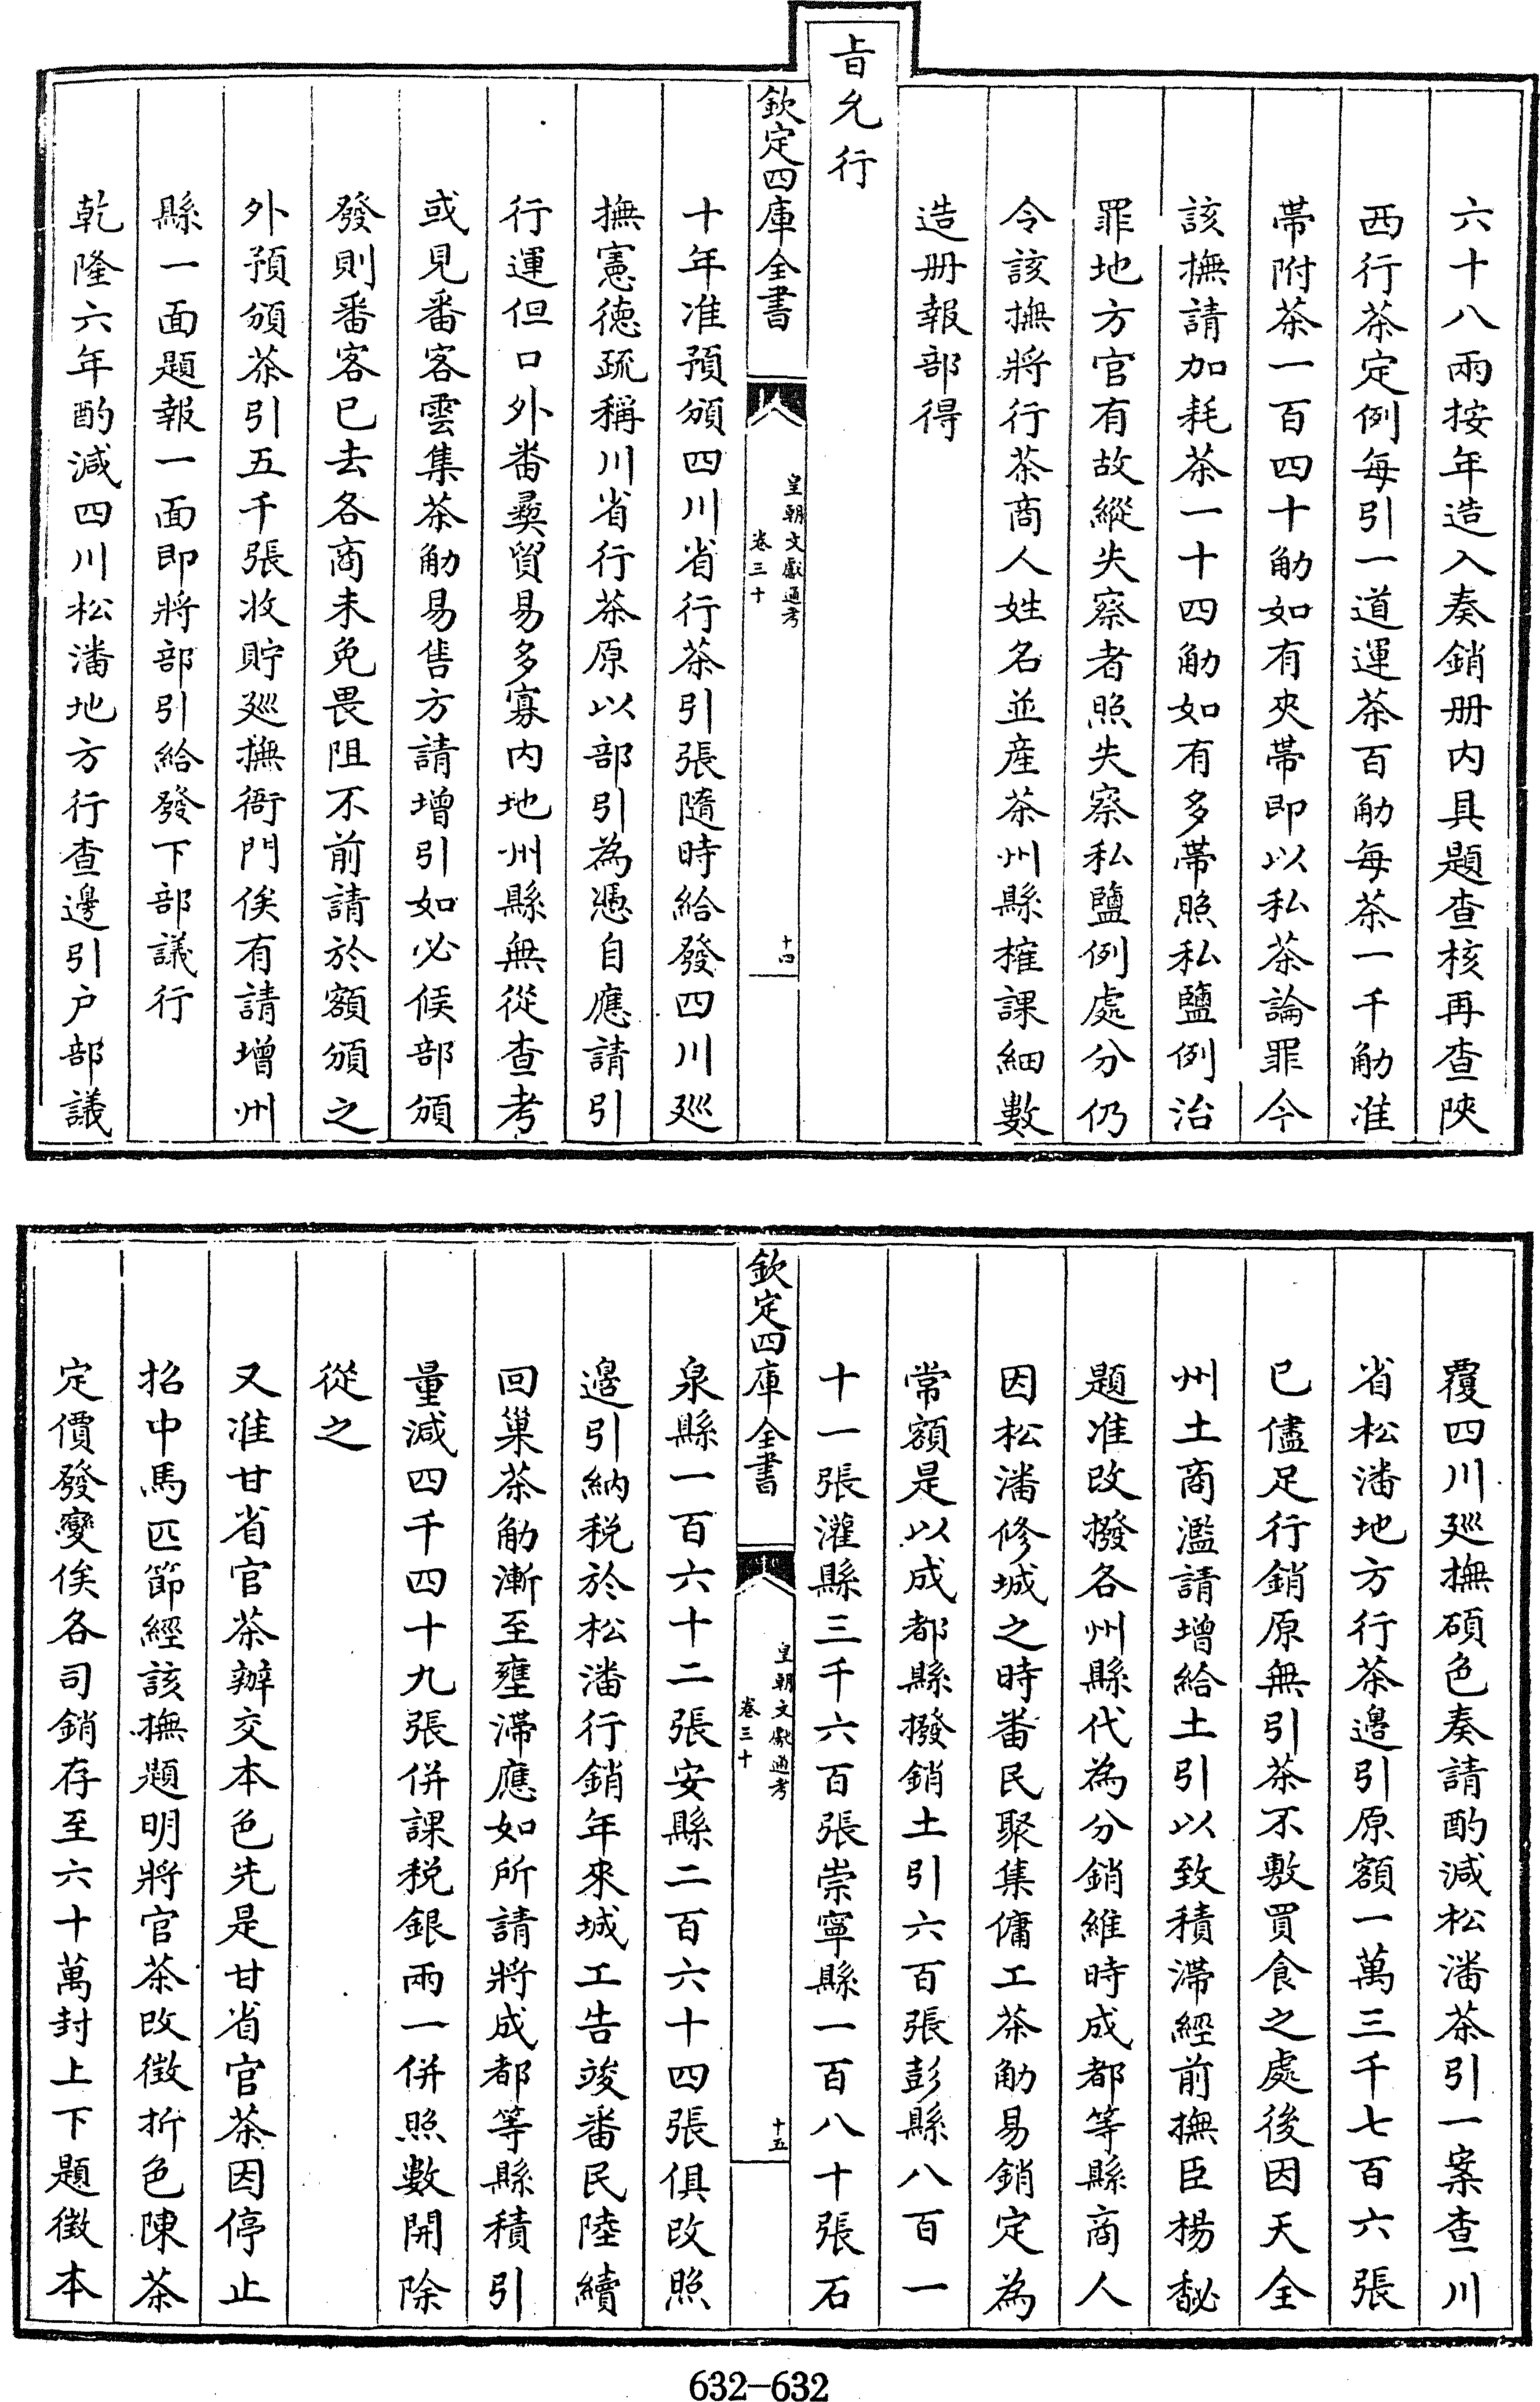 六十八兩按年造入奏銷册内具題查核再查陜
西行茶定例每引一道運茶百觔每茶一千觔准
帶附茶一百四十觔如有夾帶即以私茶論罪今
該撫請加耗茶一十四觔如有多帶照私鹽例治
罪地方官有故縱失察者照失察私鹽例處分仍
令該撫將行茶商人姓名並産茶州縣搉課細數
造册報部得
旨允行
欽定四庫全書
皇朝文獻通考
卷三十
十四
十年准預頒四川省行茶引張隨時給發四川廵
撫憲德疏稱川省行茶原以部引為憑自應請引
行運但口外畨彛貿易多寡内地州縣無從查考
或見番客雲集茶觔易售方請增引如必候部頒
發則番客已去各商未免畏阻不前請於額頒之
外預頒茶引五千張收貯廵撫衙門俟有請增州
縣一面題報一面即將部引給發下部議行
乾隆六年酌減四川松潘地方行查邊引户部議
覆四川廵撫碩色奏請酌減松潘茶引一案查川
省松潘地方行茶邊引原額一萬三千七百六張
已儘足行銷原無引茶不敷買食之處後因天全
州土商濫請增給土引以致積滯經前撫臣楊馝
題准改撥各州縣代為分銷維時成都等縣商人
因松潘修城之時番民聚集傭工茶觔易銷定為
常額是以成都縣撥銷土引六百張彭縣八百一
十一張灌縣三千六百張崇寧縣一百八十張石
欽定四庫全書
皇朝文獻通考
卷三十
十五
泉縣一百六十二張安縣二百六十四張俱改照
邉引納稅於松潘行銷年來城工告竣番民陸續
回巢茶觔漸至壅滯應如所請將成都等縣積引
量減四千四十九張併課税銀兩一併照數開除
從之
又准甘省官茶辦交本色先是甘省官茶因停止
招中馬匹節經該撫題明將官茶改徵折色陳茶
定價發變俟各司銷存至六十萬封上下題徵本
632-632